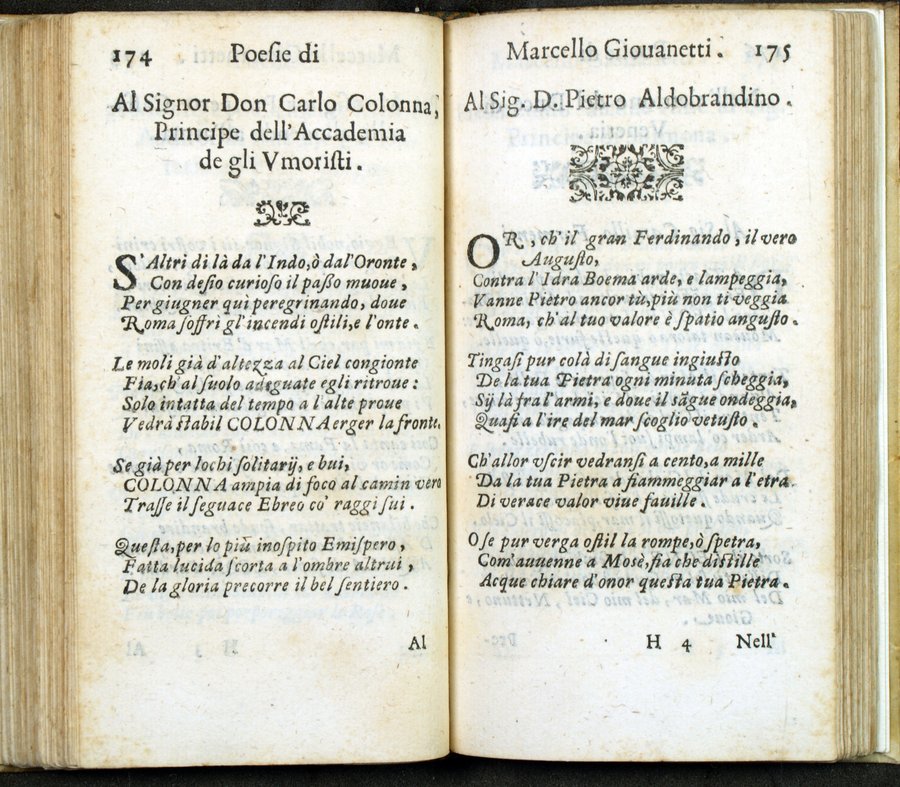 174 Poesie di
Al Signor Don Carlo Colonna,
Principe dell'Accademia
de gli Vmoristi.
S'Altri di là da l'Indo, ò dal'Oronte,
Con desio curioso il passo muoue,
Per giugner quì peregrinando, doue
Roma soffrì gl'incendi ostili, e l'onte.
Le moli già d'altezza al Ciel congionte
Fia, ch'al suolo adeguate egli ritroue:
Solo intatta del tempo a l'alte proue
Vedrà stabil COLONNA erger la fronte.
Se già per lochi solitarij, e bui,
COLONNA ampia di foco al camin vero
Trasse il seguace Ebreo co' raggi sui.
Questa, per lo più inospito Emispero,
Fatta lucida scorta a l'ombre altrui,
De la gloria precorre il bel sentiero.
Al
Marcello Giouanetti. 175
Al Sig. D. Pietro Aldobrandino.
OR, ch'il gran Ferdinando, il vero
Augusto,
Contra l'Idra Boema arde, e lampeggia,
Vanne Pietro ancor tù, più non ti veggia
Roma, ch'al tuo valore è spatio angusto.
Tingasi pur colà di sangue ingiusto
De la tua Pietra ogni minuta scheggia,
Sij là fra l'armi, e doue il sãgue ondeggia,
Quasi a l'ire del mar scoglio vetusto.
Ch'allor vscir vedransi a cento, a mille
Da la tua Pietra à fiammeggiar a l'etra
Di verace valor viue fauille.
O se pur verga ostil la rompe, ò spetra,
Com'auuenne a Mosè, fia che distille
Acque chiare d'onor questa tua Pietra.
H 4 Nell'